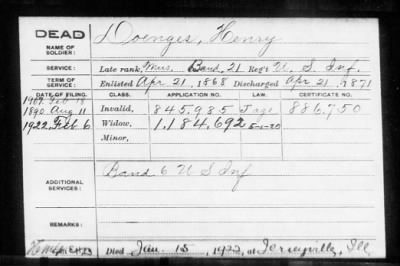 DEAD
NAME OF SOLDIER: Doenges, Henry
SERVICE: Late rank, Mus. Band, 21 Reg't U. S. Inf.
TERM OF SERVICE: Enlisted Apr 21, 1868 Discharged Apr 21, 1871
DATE OF FILING. CLASS. APPLICATION NO. LAW. CERTIFICATE NO.
1907 Feb 18
1890 Aug 11 Invalid, 845,985 886,750
1922, Feb 6 Widow, 1,184,692
Minor,
ADDITIONAL SERVICES: Band 6 U S Inf
REMARKS:
Died Jan. 15, 1922, at Jerseyville, Ill